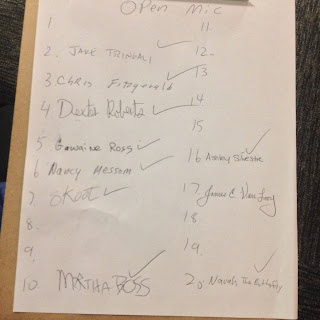 Open Mic
1
2. JAKE TRINDALI
3 Chris Fitzgerald
4 Dexter Roberts
5 Gawaine Ross
6 Nancy Messom
7. SKOOT
8.
9.
10. MARTHA BOSS
11.
12.
13
14
15
16 Ashley
17. Jamie C Van
18
19.
20. Navah The Buttafly